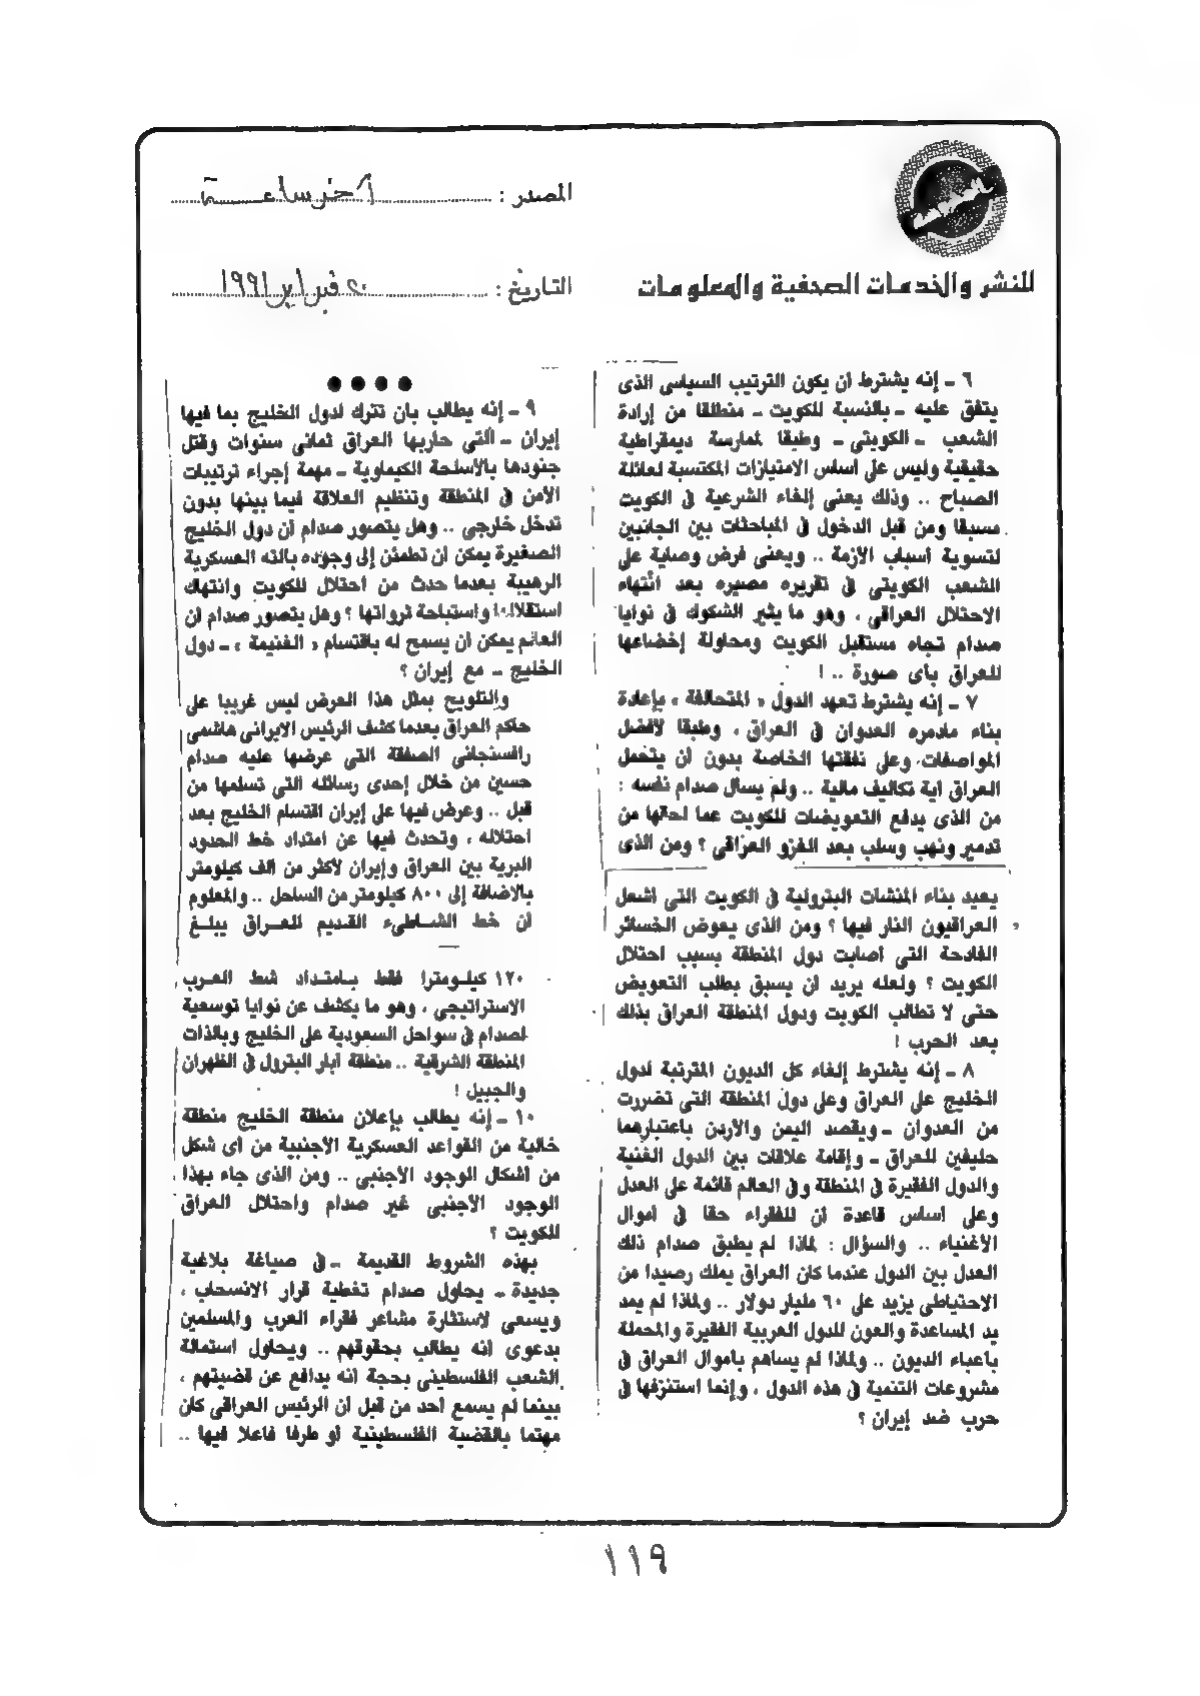 المصدر : آخر ساعة
التاريخ : ٢٠ فبراير ١٩٩١
للنشر والخدمات الصحفية والمعلومات
٦ ـ إنه يشترط ان يكون الترتيب السياسى الذى
يتفق عليه ـ بالنسبة للكويت ـ منطلقا من إرادة
الشعب ـ الكويتى ـ وطبقا لممارسة ديمقراطية
حقيقية وليس على اساس الامتيازات المكتسبة لعائلة
الصباح .. وذلك يعنى إلغاء الشرعية فى الكويت
مسبقا ومن قبل الدخول فى المباحثات بين الجانبين
لتسوية أسباب الأزمة .. ويعنى فرض وصاية على
الشعب الكويتى فى تقريره مصيره بعد انتهاء
الاحتلال العراقى ، وهو ما يثير الشكوك فى نوايا
صدام تجاه مستقبل الكويت ومحاولة إخضاعها
للعراق بأى صورة .. !
٧ ـ إنه يشترط تعهد الدول « المتحالفة » بإعادة
بناء مادمره العدوان فى العراق ، وطبقا لأفضل
المواصفات وعلى نفقتها الخاصة بدون أن يتحمل
العراق اية تكاليف مالية .. ولم يسأل صدام نفسه :
من الذى يدفع التعويضات للكويت عما لحقها من
تدمير ونهب وسلب بعد الغزو العراقى ؟ ومن الذى
يعيد بناء المنشات البترولية فى الكويت التى اشعل
العراقيون النار فيها ؟ ومن الذى يعوض الخسائر
الفادحة التى أصابت دول المنطقة بسبب احتلال
الكويت ؟ ولعله يريد ان يسبق بطلب التعويض
حتى لا تطالب الكويت ودول المنطقة العراق بذلك
بعد الحرب !
٨ ـ إنه يشترط إلغاء كل الديون المترتبة لدول
الخليج على العراق وعلى دول المنطقة التى تضررت
من العدوان ـ ويقصد اليمن والأردن باعتبارهما
حليفين للعراق ـ وإقامة علاقات بين الدول الغنية
والدول الفقيرة فى المنطقة وفى العالم قائمة على العدل
وعلى اساس قاعدة ان للفقراء حقا فى اموال
الأغنياء .. والسؤال : لماذا لم يطبق صدام ذلك
العدل بين الدول عندما كان العراق يملك رصيدا من
الاحتياطى يزيد على ٦٠ مليار دولار .. ولماذا لم يمد
يد المساعدة والعون للدول العربية الفقيرة والمحملة
بأعباء الديون .. ولماذا لم يساهم بأموال العراق فى
مشروعات التنمية فى هذه الدول ، وإنما استنزفها فى
حرب ضد إيران ؟
● ● ● ●
٩ ـ إنه يطالب بان تترك لدول الخليج بما فيها
إيران ـ التى حاربها العراق ثمانى سنوات وقتل
جنودها بالأسلحة الكيماوية ـ مهمة إجراء ترتيبات
الأمن فى المنطقة وتنظيم العلاقة فيما بينها بدون
تدخل خارجى .. وهل يتصور صدام ان دول الخليج
الصغيرة يمكن ان تطمئن إلى وجوده بالته العسكرية
الرهيبة بعدما حدث من احتلال للكويت وانتهاك
استقلالها واستباحة ثرواتها ؟ وهل يتصور صدام ان
العالم يمكن ان يسمح له باقتسام « الغنيمة » ـ دول
الخليج ـ مع إيران ؟
والتلويح بمثل هذا العرض ليس غريبا على
حاكم العراق بعدما كشف الرئيس الايرانى هاشمى
رافسنجانى الصفقة التى عرضها عليه صدام
حسين من خلال إحدى رسائله التى تسلمها من
قبل .. وعرض فيها على إيران اقتسام الخليج بعد
احتلاله ، وتحدث فيها عن امتداد خط الحدود
البرية بين العراق وإيران لأكثر من الف كيلومتر
بالاضافة إلى ٨٠٠ كيلومتر من الساحل .. والمعلوم
ان خط الشاطىء القديم للعراق يبلغ
١٢٠ كيلومترا فقط بامتداد شط العرب
الاستراتيجى ، وهو ما يكشف عن نوايا توسعية
لصدام فى سواحل السعودية على الخليج وبالذات
المنطقة الشرقية .. منطقة ابار البترول فى الظهران
والجبيل !
١٠ ـ إنه يطالب بإعلان منطقة الخليج منطقة
خالية من القواعد العسكرية الأجنبية من أى شكل
من أشكال الوجود الأجنبى .. ومن الذى جاء بهذا
الوجود الأجنبى غير صدام واحتلال العراق
للكويت ؟
بهذه الشروط القديمة ـ فى صياغة بلاغية
جديدة ـ يحاول صدام تغطية قرار الانسحاب ،
ويسعى لاستثارة مشاعر فقراء العرب والمسلمين
بدعوى أنه يطالب بحقوقهم .. ويحاول استمالة
الشعب الفلسطينى بحجة أنه يدافع عن قضيتهم ،
بينما لم يسمع أحد من قبل أن الرئيس العراقى كان
مهتما بالقضية الفلسطينية أو طرفا فاعلا فيها ..
١١٩